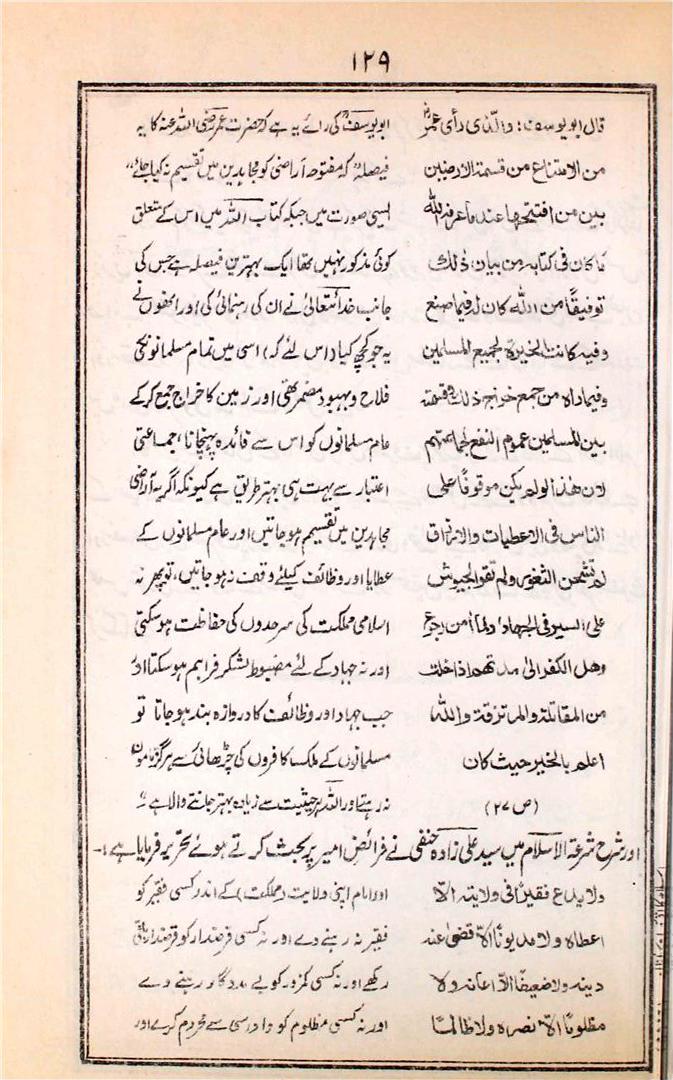 ۱۲۹
قال ابو یوسف: والذی رأی عمرؓ
من الامتناع من قسمة الارضین
بین من افتتحها عند ما عرفه الله
ما کان فی کتابه من بیان ذلك
توفیقًا من الله کان له فیما صنع
وفیه کانت الخیرة لجمیع المسلمین
وفیما راه من جمع خراج ذلك وقسمته
بین المسلمین عموم النفع لجماعتهم
لان هذا لو لم یکن موقوفًا علی
الناس فی الاعطیات والارزاق
لم تشحن الثغور ولم تقو الجیوش
علی السیر فی الجهاد ولما أمن رجوع
وهل الکفر الی مدنهم اذا خلت
من المقاتلة والمرتزقة والله
اعلم بالخیر حیث کان
(ص ۲۷)
ابویوسفؒ کی رائے یہ ہے کہ حضرت عمر رضی اللہ عنہ کا یہ
فیصلہ "کہ مفتوحہ آراضی کو مجاہدین میں تقسیم نہ کیا جائے"
ایسی صورت میں جبکہ کتاب اللہ میں اس کے متعلق
کوئی مذکور نہیں تھا ایک بہترین فیصلہ ہے جس کی
جانب خدا تعالیٰ نے ان کی رہنمائی کی اور انھوں نے
یہ جو کچھ کیا (اس لئے کہ) اسی میں تمام مسلمانوں کی
فلاح و بہبود مضمر تھی اور زمین کا خراج جمع کر کے
عام مسلمانوں کو اس سے فائدہ پہنچانا، جماعتی
اعتبار سے بہت ہی بہتر طریق ہے کیونکہ اگر یہ آراضی
مجاہدین میں تقسیم ہو جاتیں اور عام مسلمانوں کے
عطایا اور وظائف کیلئے وقف نہ ہو جاتیں، تو پھر نہ
اسلامی مملکت کی سرحدوں کی حفاظت ہو سکتی
اور نہ جہاد کے لئے مضبوط لشکر فراہم ہو سکتا اور
جب جہاد اور وظائف کا دروازہ بند ہو جاتا تو
مسلمانوں کے ملک کافروں کی چڑھائی سے ہرگز مامون
نہ رہتے اور اللہ ہر حیثیت سے زیادہ بہتر جاننے والا ہے"
اور شرح شرعۃ الاسلام میں سید علی زادہ حنفی نے فرائض امیر پر بحث کرتے ہوئے تحریر فرمایا ہے :-
ولا یدع فقیرًا فی ولایته الّا
اعطاه ولا مدیونًا الّا قضی عنه
دینه ولا ضعیفًا الّا اعانه ولا
مظلومًا الّا نصره ولا ظالمًا
اور امام اپنی ولایت (مملکت) کے اندر کسی فقیر کو
فقیر نہ رہنے دے اور نہ کسی قرضدار کو قرضدار باقی
رکھے اور نہ کسی کمزور کو بے مددگار رہنے دے
اور نہ کسی مظلوم کو دادرسی سے محروم کرے اور